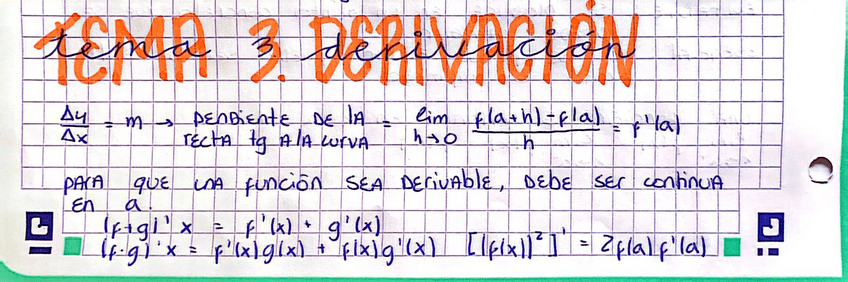 TEMA 3. DERIVACIÓN
tema 3. derivación
Δy/Δx = m → PENDIENTE DE LA RECTA tg A LA CURVA = lim h→0 f(a+h)-f(a)/h = f'(a)
PARA QUE UNA FUNCIÓN SEA DERIVABLE, DEBE SER CONTINUA
EN a.
(f+g)'x = f'(x) + g'(x)
(f·g)'x = f'(x)g(x) + f(x)g'(x) [(f(x))²]' = 2f(a)f'(a)